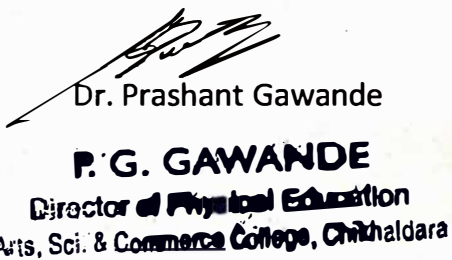 Dr. Prashant Gawande
P. G. GAWANDE
Director of Physical Education
Arts, Sci. & Commerce College, Chikhaldara